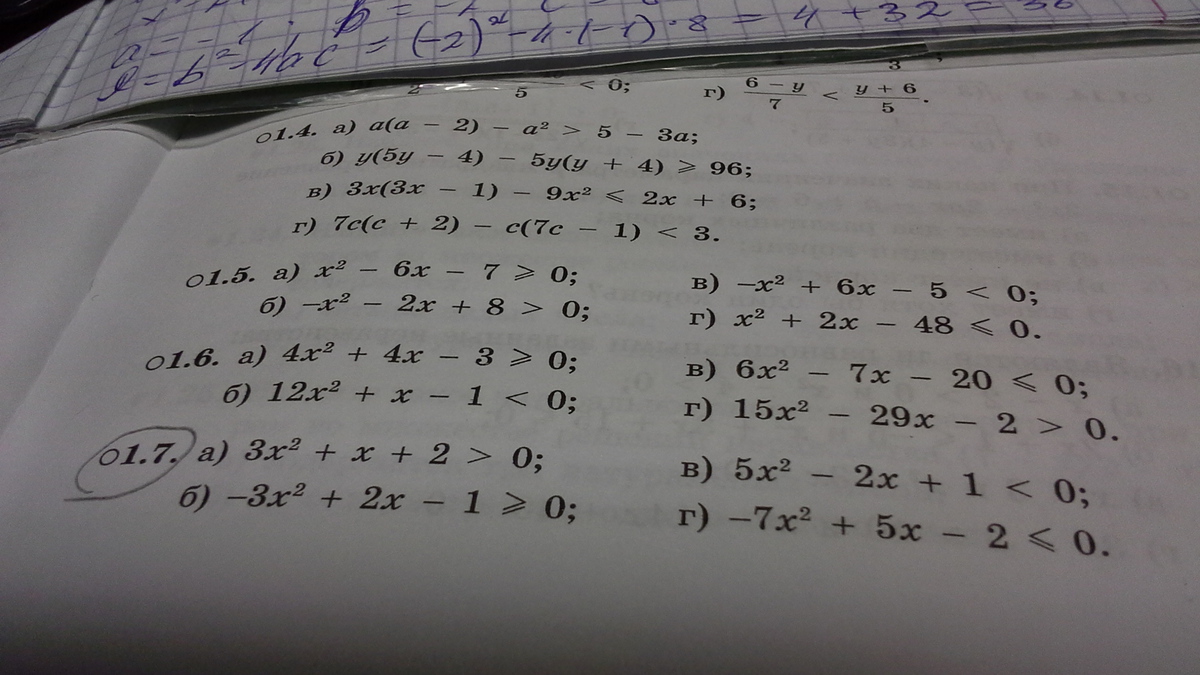 a = -1; b = -2
= b² - 4ac = (-2)² - 4·(-1)·8 = 4 + 32 = 36
2 5 < 0; г) (6 − y)/7 < (y + 6)/5.
3 ;
○1.4. а) a(a − 2) − a² > 5 − 3a;
б) y(5y − 4) − 5y(y + 4) ⩾ 96;
в) 3x(3x − 1) − 9x² ⩽ 2x + 6;
г) 7c(c + 2) − c(7c − 1) < 3.
○1.5. а) x² − 6x − 7 ⩾ 0; в) −x² + 6x − 5 < 0;
б) −x² − 2x + 8 > 0; г) x² + 2x − 48 ⩽ 0.
○1.6. а) 4x² + 4x − 3 ⩾ 0; в) 6x² − 7x − 20 ⩽ 0;
б) 12x² + x − 1 < 0; г) 15x² − 29x − 2 > 0.
○1.7. а) 3x² + x + 2 > 0; в) 5x² − 2x + 1 < 0;
б) −3x² + 2x − 1 ⩾ 0; г) −7x² + 5x − 2 ⩽ 0.